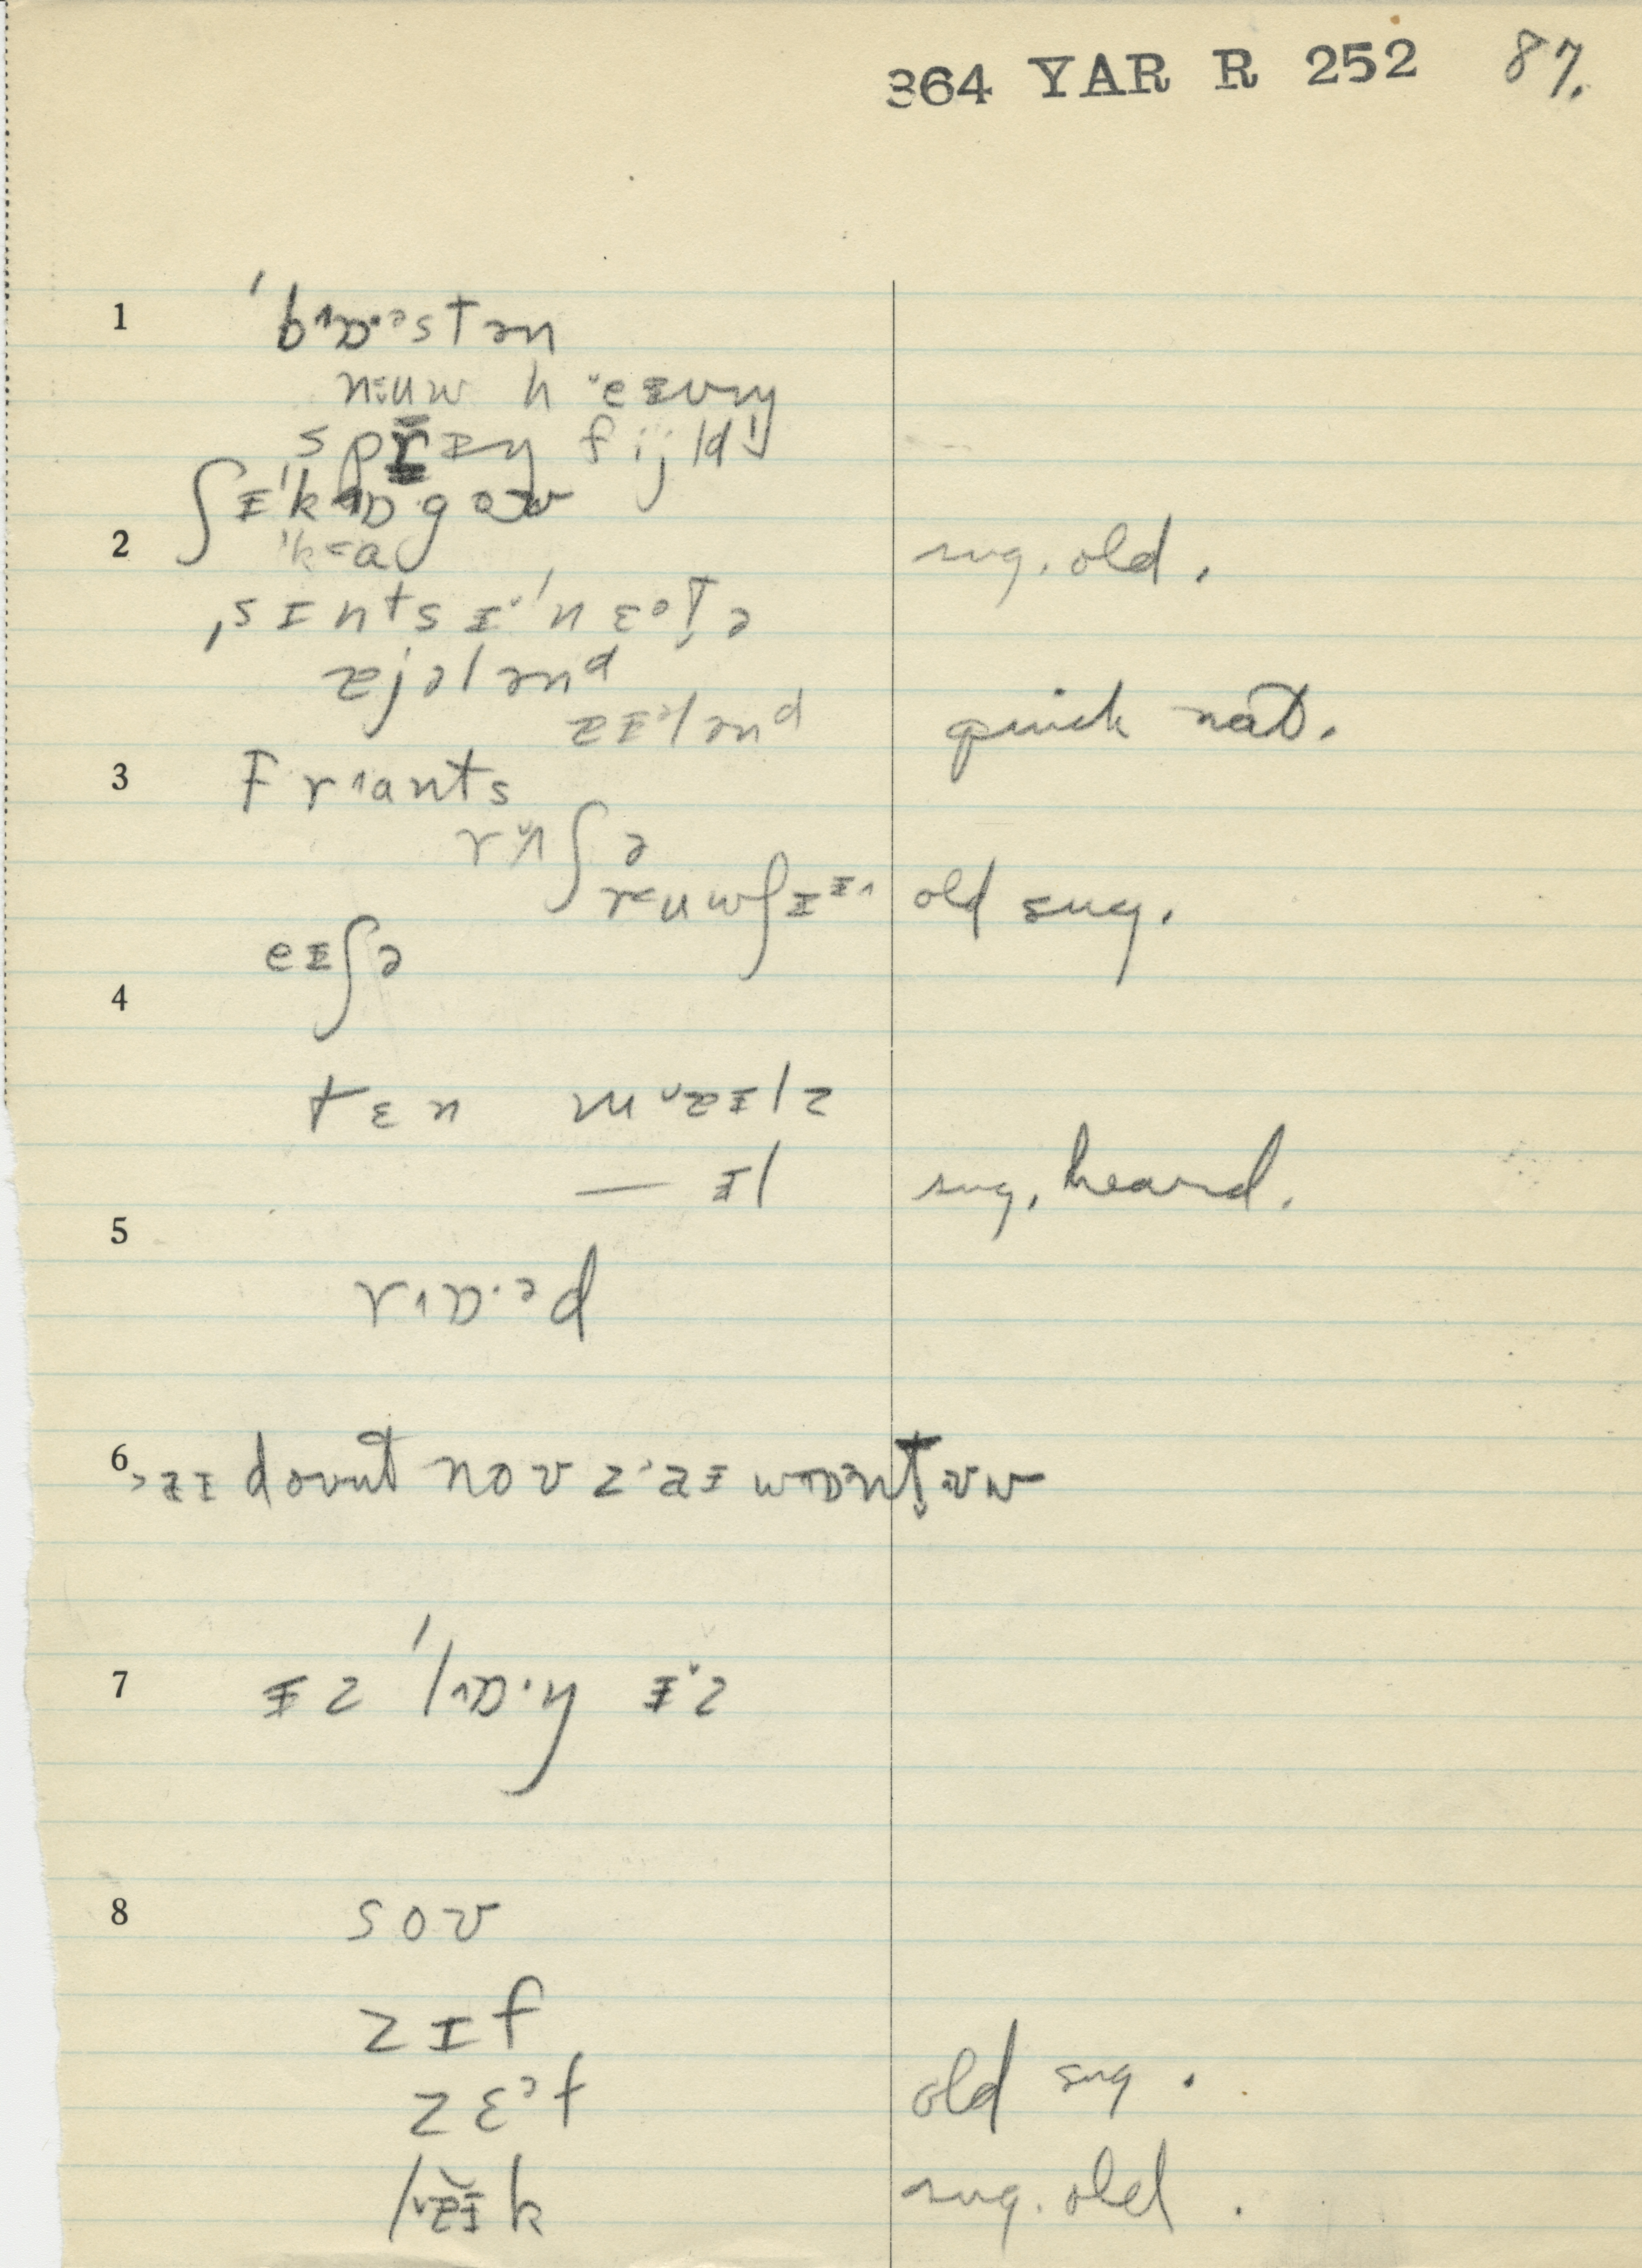 364 YAR R 252 87.
1 ˈbɒ·ᵊstən
n u w h e ɪ v ŋ
s p r ɪ ŋ f i j l d
ʃɪˈkɒgəʊ
2 ˈka sug. old.
ˌsɪntsɪˈnɛᵊt̬ə
æjələnd
æɪᵊlənd quick nat.
3 frants
rʌʃə
ruwʃɪ old sug.
eɪʃə
4
tɛn mæɪlz
— ɪl sug. heard.
5
rɒ·ᵊd
6 aɪ doʊnt noʊ z aɪ wɒnt̬ uw
7 ɪz ˈlɒ·ŋ ɪz
8 soʊ
zɪf
zɛᵊf old sug.
læɪk sug. old.